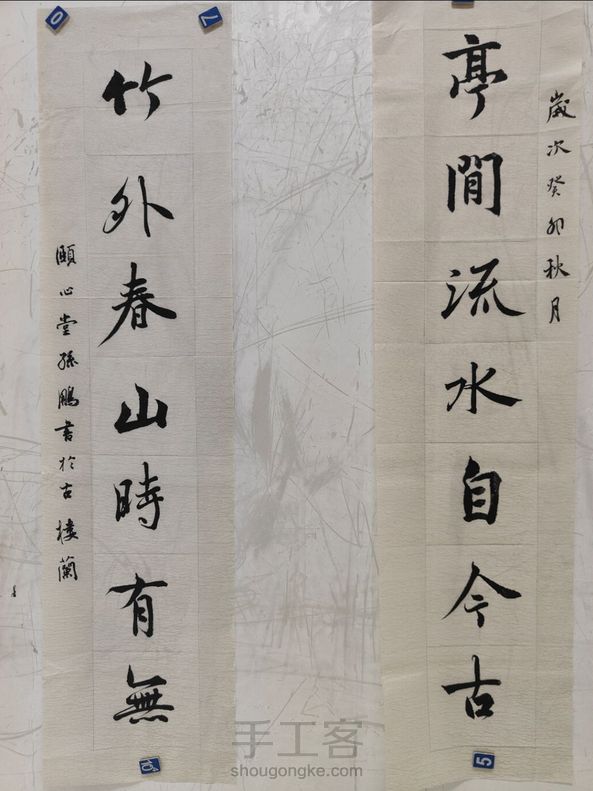 歲次癸卯秋月
亭間流水自今古
竹外春山時有無
頤心堂孫鵬書於古樓蘭
手工客
shougongke.com
0
7
5
10